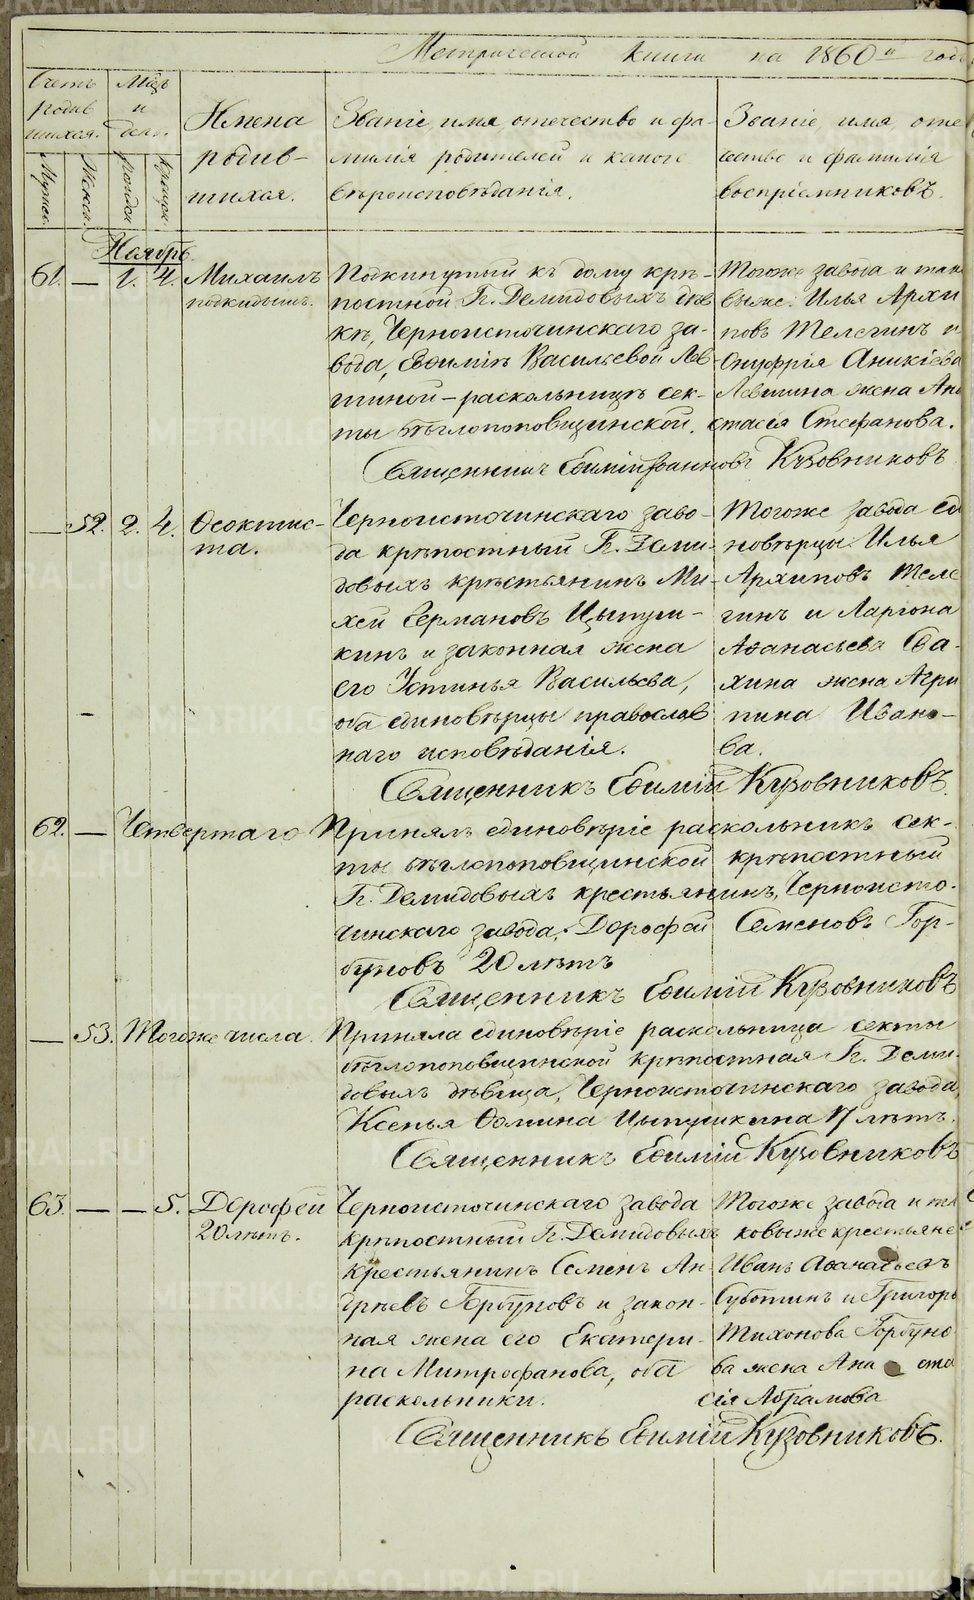 Метрической книги на 1860й год
Счетъ родившихся.
Муж.
Женс.
Мѣсц и день.
рожден
крещен.
Имена родив-
шихся.
Званіе, имя, отечество и фа-
милія родителей и какого
вѣроисповѣданія.
Званіе, имя, оте
чество и фамилія
воспріемниковъ.
Ноябрь
61. — 1. 4. Михаилъ
подкидышъ.
Подкинутый къ дому крѣ-
постной Гг. Демидовыхъ дѣв
кѣ, Черноисточинскаго за-
вода, Евфиміѣ Васильевой Лев
шиной – раскольницѣ сек-
ты бѣглопоповщинской.
Тогоже завода и так
выже: Илья Архи
повъ Телегинъ и
Онуфрія Аникіева
Левшина жена Ана
стасія Стефанова.
Священникъ Евфимій Іоанновъ Кузовниковъ
— 52. 2. 4. Ѳеоктис-
та.
Черноисточинскаго заво-
да крѣпостный Гг. Деми-
довыхъ крестьянинъ Ми-
хей Германовъ Цыпуш-
кинъ и законная жена
его Устинья Васильева,
оба единовѣрцы православ
наго исповѣданія.
Тогоже завода еди
новѣрцы Илья
Архиповъ Теле
гинъ и Ларіона
Аѳанасьева Сва-
хина жена Агри
пина Ивано-
ва.
Священникъ Евфимій Кузовниковъ.
62. — Четвертаго
Принялъ единовѣріе раскольникъ сек-
ты бѣглопоповщинской крѣпостный
Гг. Демидовыхъ крестьянинъ, Черноисто-
чинскаго завода, Дорофей Семеновъ Гор-
буновъ 20 лѣтъ
Священникъ Евфимій Кузовниковъ
— 53. Тогоже числа.
Приняла единовѣріе раскольница секты
бѣглопоповщинской крѣпостная Гг. Деми-
довыхъ дѣвица, Черноисточинскаго завода,
Ксенья Ѳомина Цыпушкина 17 лѣтъ.
Священникъ Евфимій Кузовниковъ
63. — — 5. Дорофей
20 лѣтъ.
Черноисточинскаго завода
крѣпостный Гг. Демидовыхъ
крестьянинъ Семенъ Ан
дреевъ Горбуновъ и закон-
ная жена его Екатери-
на Митрофанова, оба
раскольники.
Тогоже завода и та
ковыже крестьяне
Иванъ Аѳанасьевъ
Суботинъ и Григорь
Тихонова Горбуно
ва жена Ана ста
сія Абрамова
Священникъ Евфимій Кузовниковъ.
METRIKI.GASO-URAL.RU